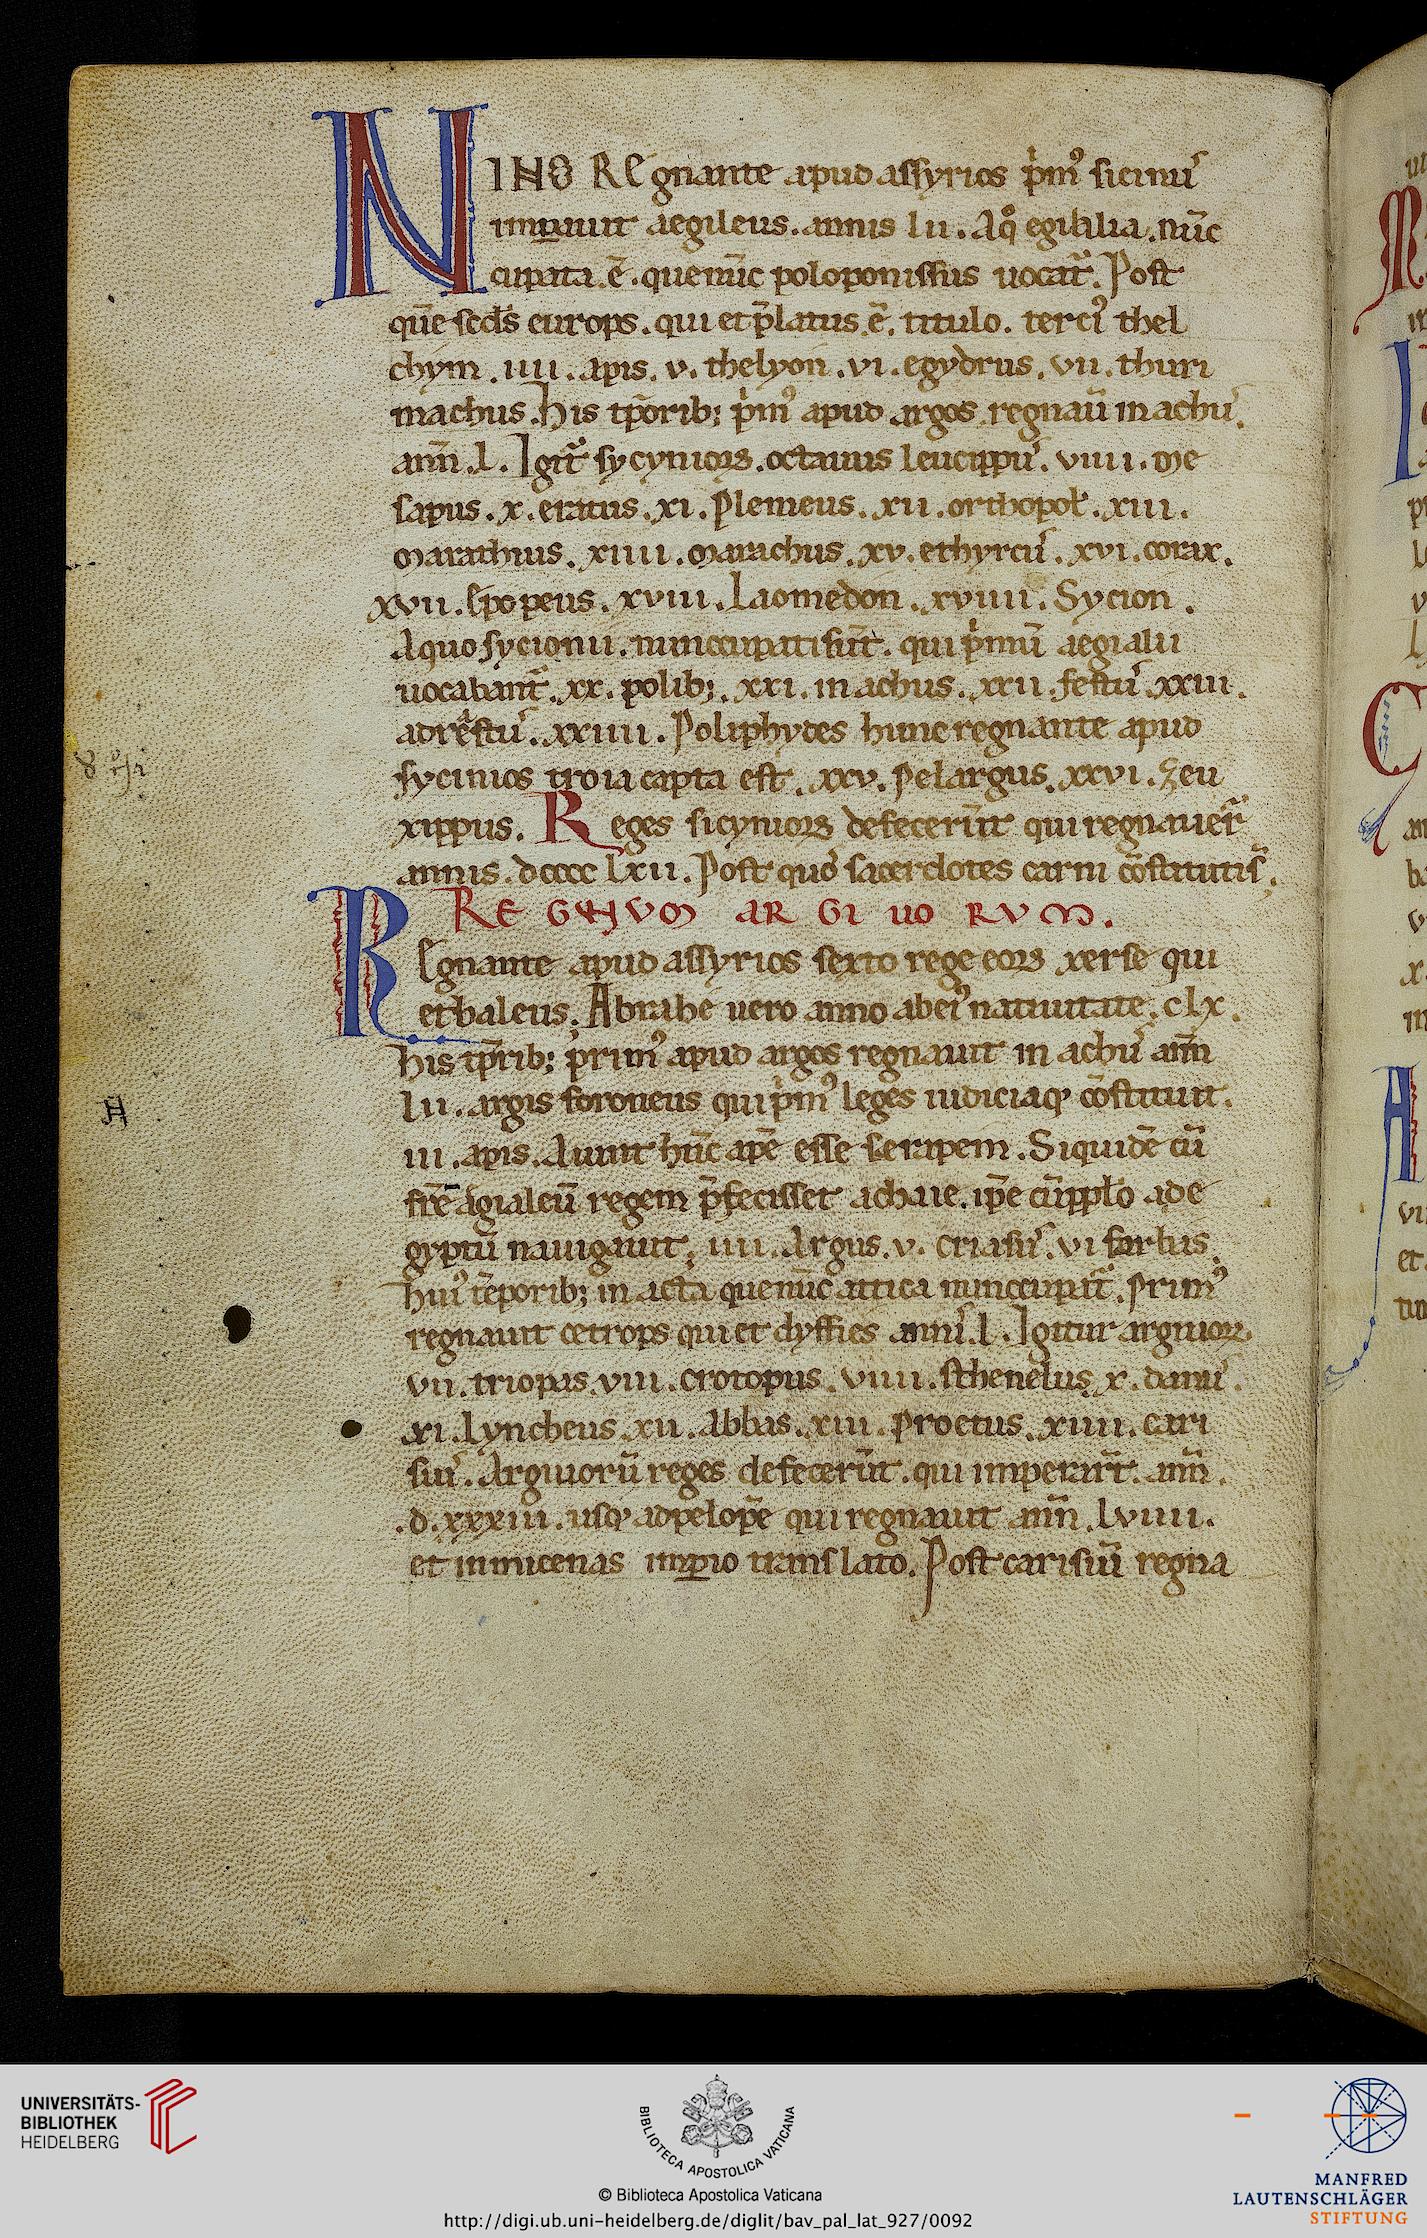 NINO REgnante apud assyrios pͥmꝰ sicinii
imꝑauit aegileus. annis lii. Aqͦ egilalia. nūc
cupata. ē. que nūc poloponissus uocat᷑. Post
quē scds europs. qui et p̄latus. ē. titulo. terciꝰ thel
chym. iiii. apis. v. thelyon. vi. egydrus. vii. thuri
machus. His tp̄orib; pͥmꝰ apud argos regnau̅ inachuꝰ.
ann̄. l. Igit᷑ sycynioꝝ. octauus leucippuꝰ. viiii. me
sapus. x. eratus. xi. Plemeus. xii. orthopol. xiii.
marathius. xiiii. marachus. xv. ethyrcuꝰ. xvi. corax.
xvii. Epopeus. xviii. Laomedon. xviiii. Sycion.
Aquo sycionii. nunccupati sūt. qui pͥmū aegialii
uocabant᷑. xx. polib;. xxi. inachus. xxii. festuꝰ. xxiii.
adrestuꝰ. xxiiii. Poliphydes hunc regnante apud
sycinios troia capta est. xxv. Pelargus. xxvi. Zeu
xippus. Reges sicynioꝝ defecerūt qui regnauer᷑
annis. dcccc lxii. Post quoꝰ sacerdotes carni cōstitutis᷑.
REGNVM ARGIUORVM.
REgnante apud assyrios sexto rege eoꝝ xerse qui
et baleus. Abrahe uero anno abeiꝰ natiuitate. clx.
His tp̄rib; primꝰ apud argos regnauit inachuꝰ ann̄
lii. argis foroneus qui pͥmꝰ leges iudiciaqꝫ cōstituit.
iii. apis. Aiunt hūc apē esse serapem. Siquidē cū
frē agialeū regem p̄fecisset achaie. ip̄e cū ppłо ade
gyptū nauigauit. iiii. Argus. v. criasuꝰ. vi forbas.
Huiꝰ tēporib; in acta que nūc attica nunccupat᷑. Primꝰ
regnauit cetrops qui et dyffies anniꝰ. l. Igitur argiuoꝝ
vii. triopas. viii. crotopus. viiii. sthenelus. x. danuꝰ.
xi. Lyncheus. xii. Abbas. xiii. Proetus. xiiii. cari
suiꝰ. Argiuorū reges defecerūt. qui imperar̄t. ann̄.
.d. xxxiii. usqꝫ adpelopē qui regnauit ann̄. lviiii.
et inmicenas imꝑio translato. Post carisiū regna
UNIVERSITÄTS-
BIBLIOTHEK
HEIDELBERG
BIBLIOTECA APOSTOLICA VATICANA
© Biblioteca Apostolica Vaticana
http://digi.ub.uni-heidelberg.de/diglit/bav_pal_lat_927/0092
MANFRED
LAUTENSCHLÄGER
STIFTUNG